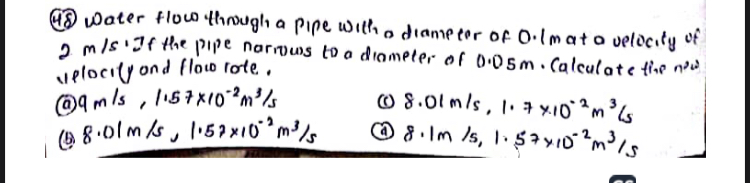 48 Water flow through a pipe with a diameter of 0.1m at a velocity of
2 m/s. If the pipe narrows to a diameter of 0.05m. Calculate the new
velocity and flow rate.
(a) 9 m/s, 1.57x10⁻²m³/s (c) 8.01 m/s, 1.7x10⁻²m³/s
(b) 8.01 m/s, 1.57x10⁻²m³/s (d) 8.1m/s, 1.57x10⁻²m³/s